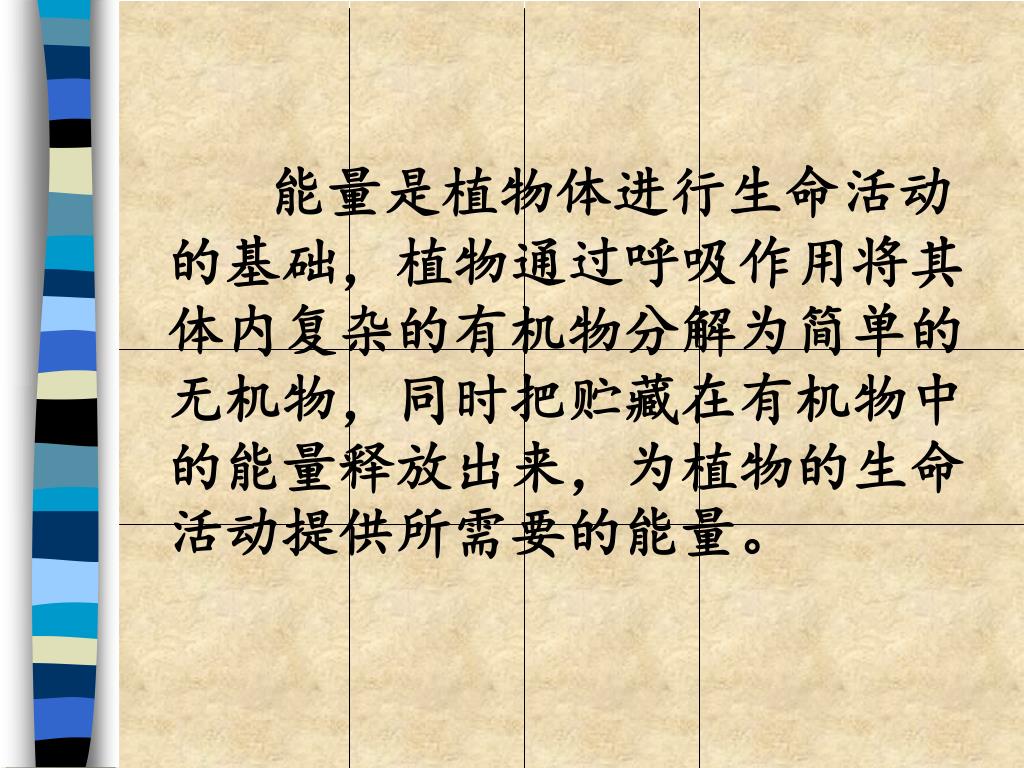 能量是植物体进行生命活动
的基础，植物通过呼吸作用将其
体内复杂的有机物分解为简单的
无机物，同时把贮藏在有机物中
的能量释放出来，为植物的生命
活动提供所需要的能量。